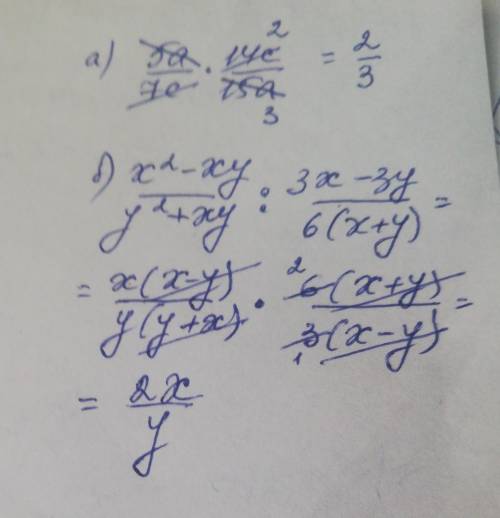 а) 5a/7c · 14c/15a = 2/3
2
3
б) x²-xy/y²+xy : 3x-3y/6(x+y) =
= x(x-y)/y(y+x) · 6(x+y)/3(x-y) =
2
1
= 2x/y